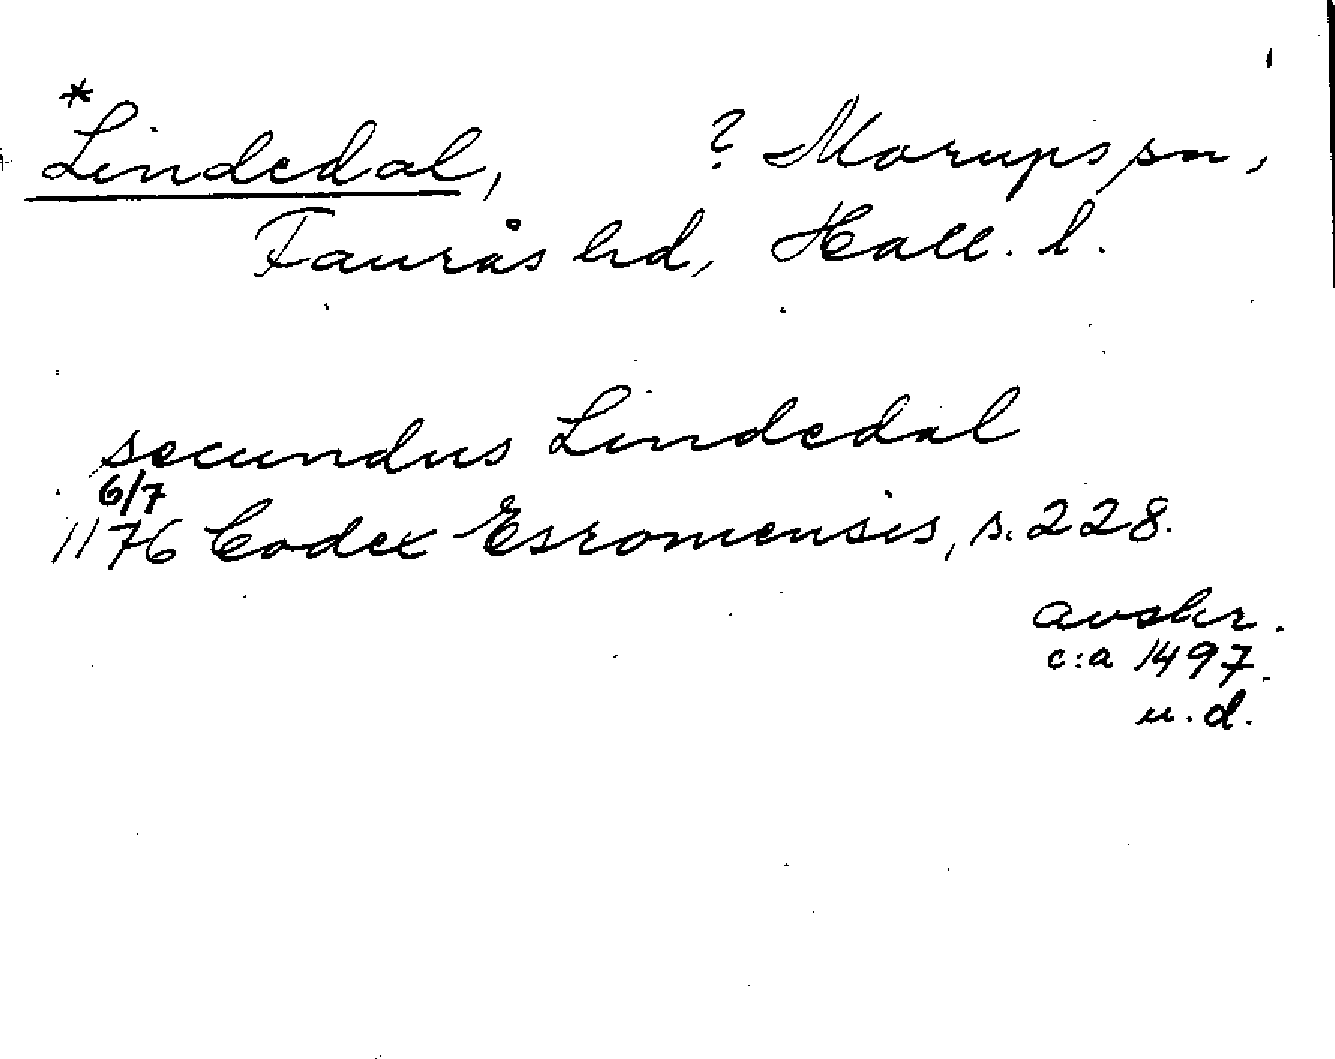 *
Lindedal, ? Morups sn,
Faurås hd, Hall. l.
secundus Lindedal
6/7
1176 Codex Esromensis, s. 228.
avskr.
c:a 1497.
u.d.